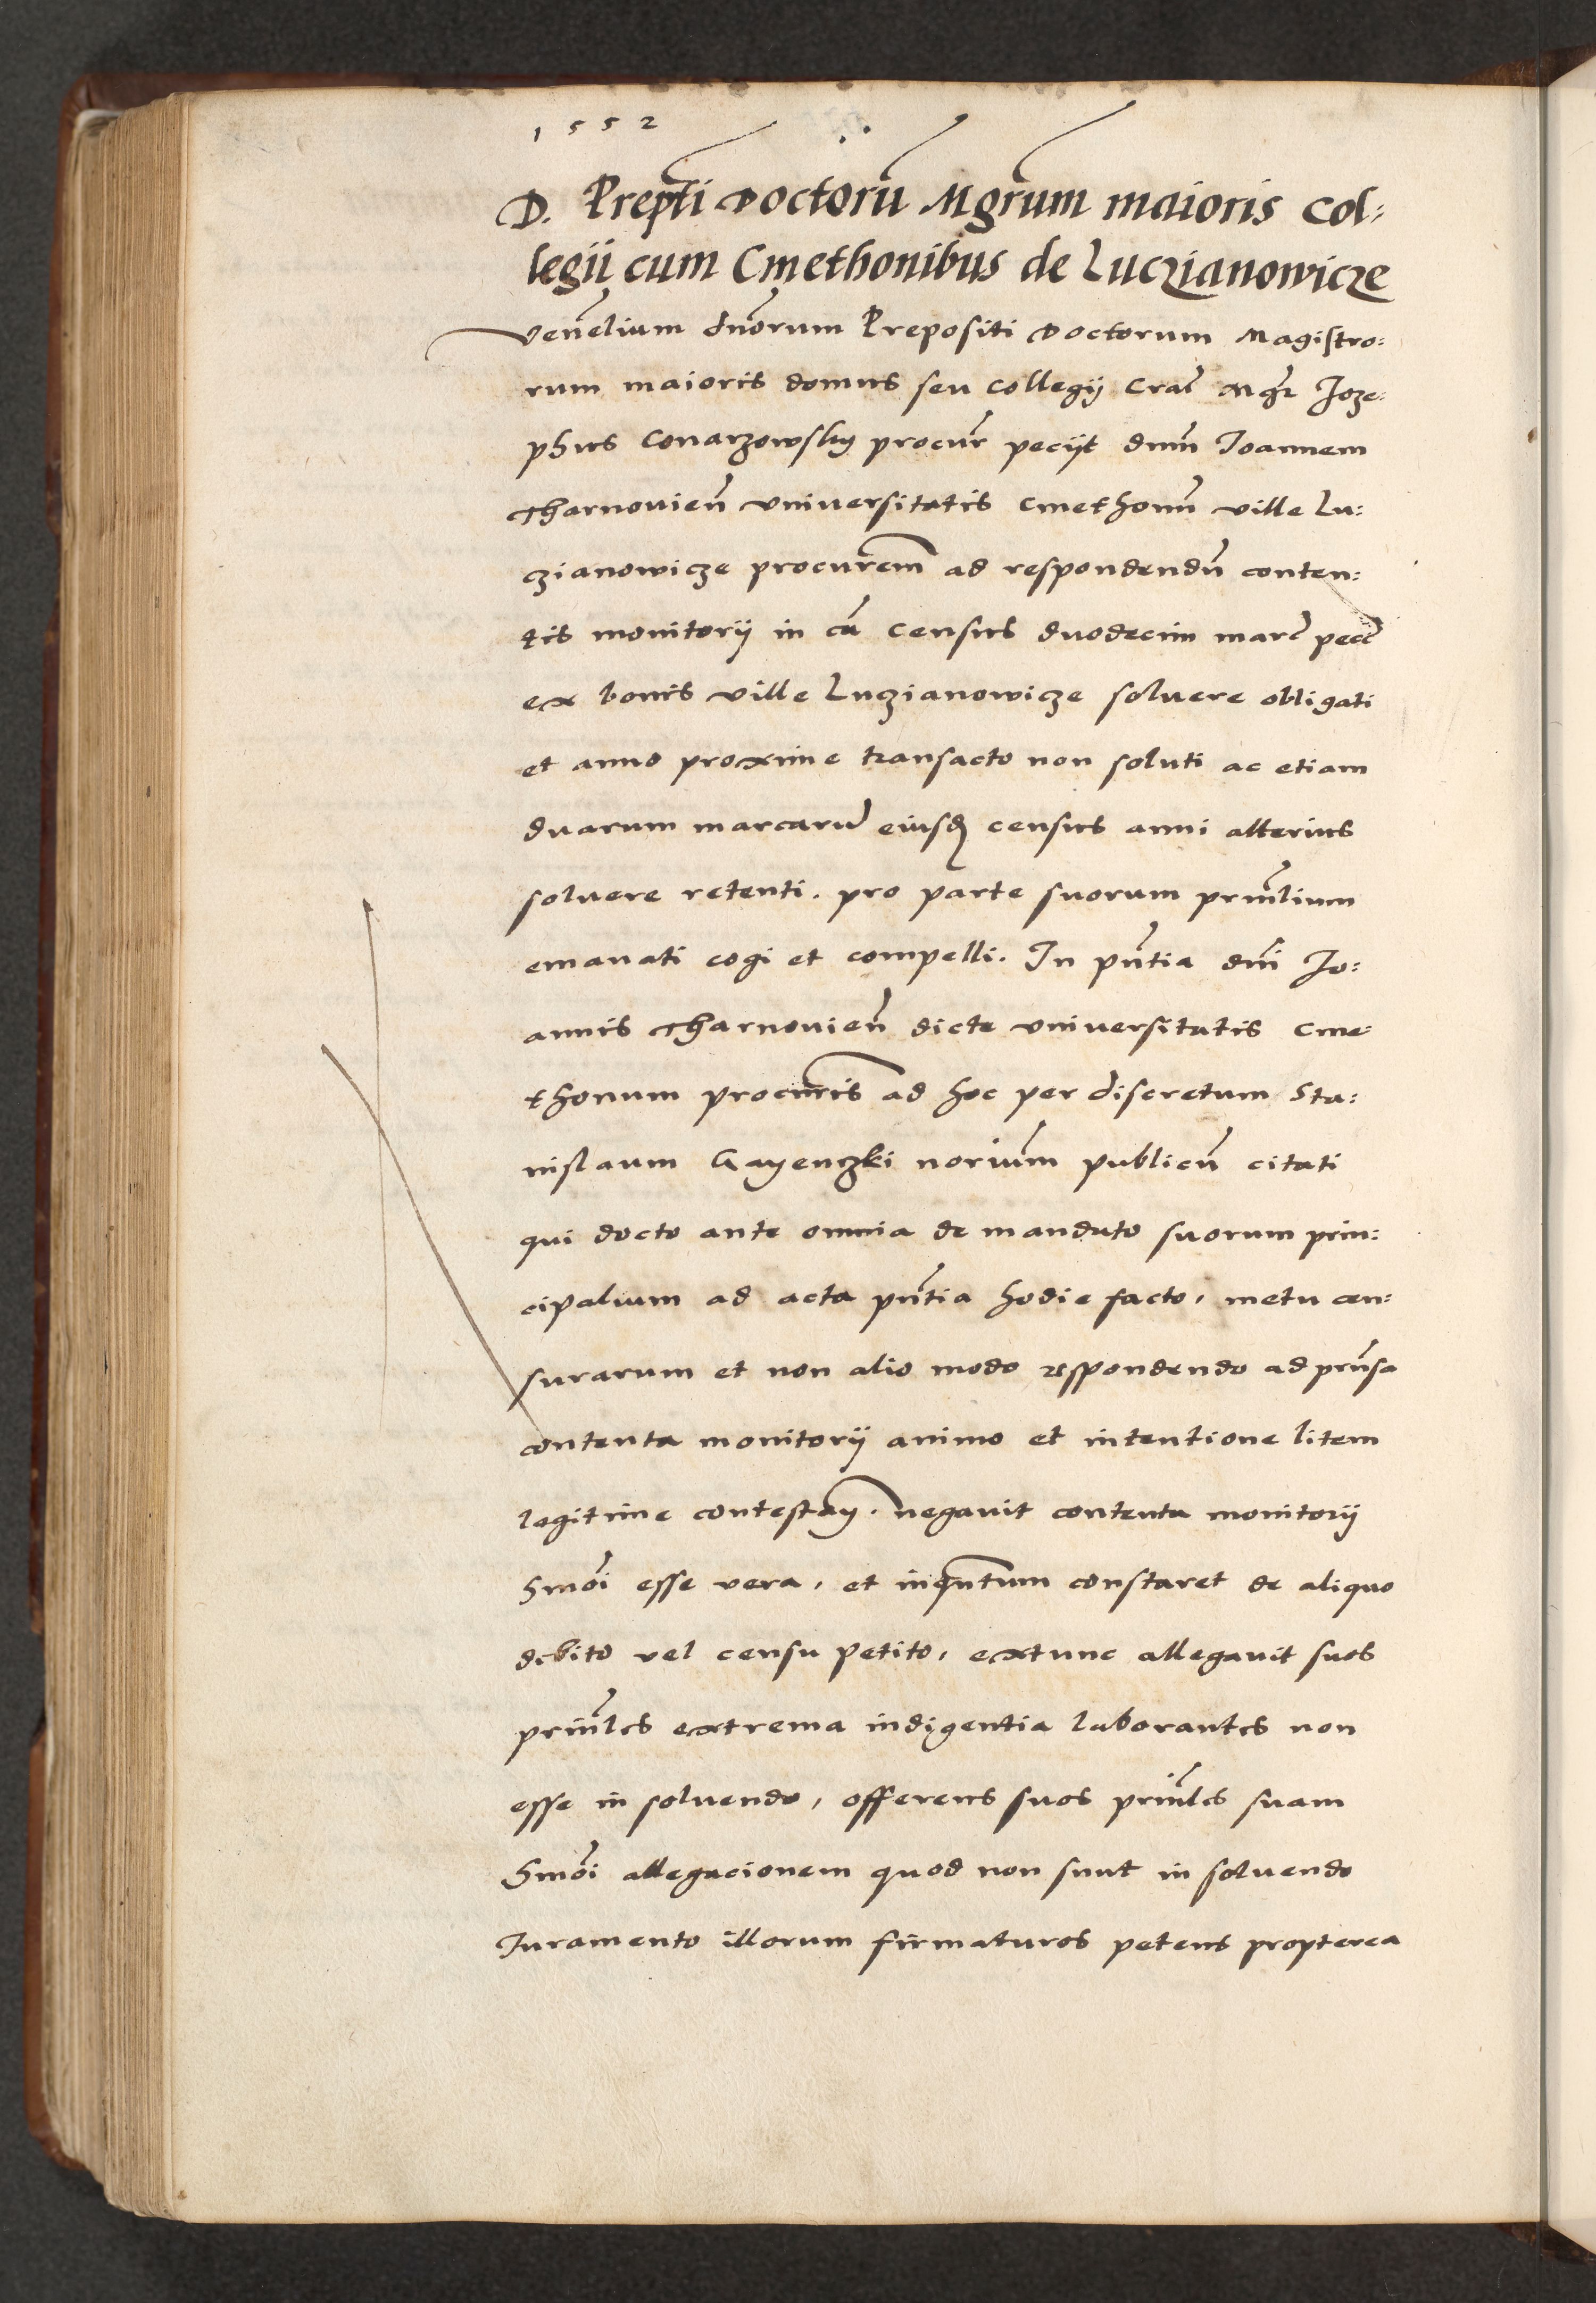 1552
D. Prepti Doctorũ Mgrum maioris Col:
legii cum Cmethonibus de Luczianowicze
Venelium dnorum Prepositi Doctorum Magistro:
rum maioris domus seu collegij Crac Mgr Joze:
phus Conarzowsky procur peciit dnm Joannem
Tharnovien universitatis Cmethonu ville Lu:
czianowicze procurem ad respondendu conten:
tis monitorij in ca census duodecim marc pecc
ex bonis ville Luczianowicze solvere obligati
et anno proxime transacto non soluti ac etiam
duarum marcaru eiusd census anni alterius
solvere retenti. pro parte suorum prinlium
emanati cogi et compelli. In pntia dni Jo:
annis Tharnovien dicte universitatis Cme:
thonum procuris ad hoc per discretum Sta:
nislaum Gayenczki norium publicu citati
qui docto ante omnia de mandato suorum prin:
cipalium ad acta pntia hodie facto, metu cen:
surarum et non alio modo respondendo ad prnsa
contenta monitorij animo et intentione litem
legitime contestan. negavit contenta monitorij
hmoi esse vera, et inqntum constaret de aliquo
debito vel censu petito, extunc allegavit suos
prinles extrema indigentia laborantes non
esse in solvendo, offerens suos prinles suam
hmoi allegacionem quod non sunt in solvendo
Juramento illorum firmaturos petens propterea